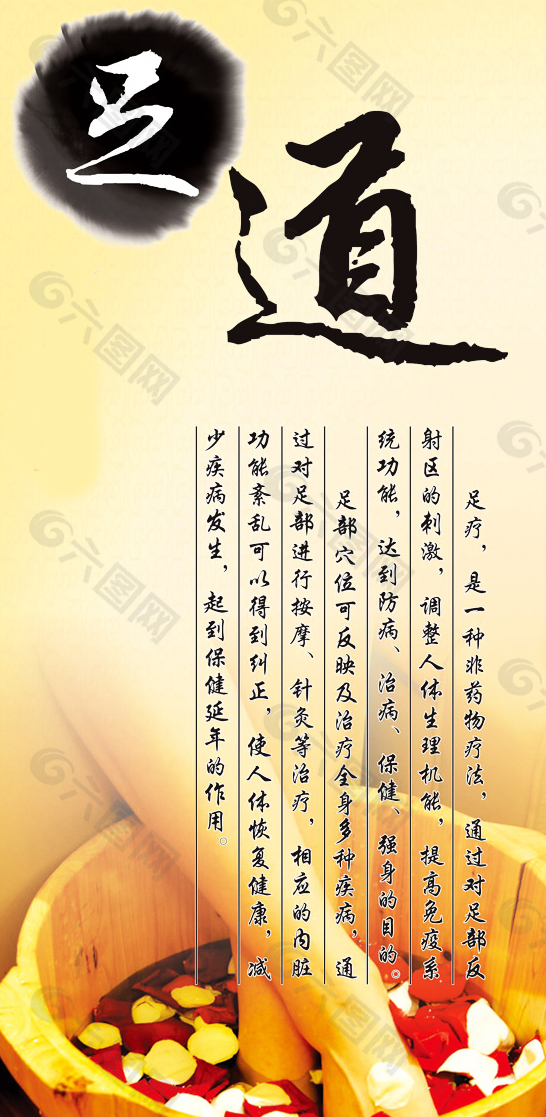 足道
足疗，是一种非药物疗法，通过对足部反
射区的刺激，调整人体生理机能，提高免疫系
统功能，达到防病、治病、保健、强身的目的。
足部穴位可反映及治疗全身多种疾病，通
过对足部进行按摩、针灸等治疗，相应的内脏
功能紊乱可以得到纠正，使人体恢复健康，减
少疾病发生，起到保健延年的作用。
六图网
六图网
六图网
六图网
六图网
六图网